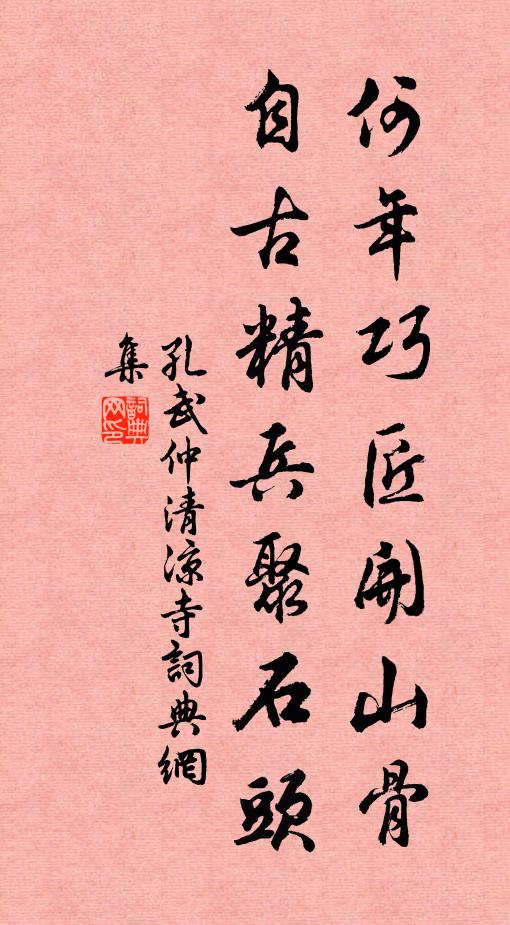 何年巧匠開山骨
自古精兵聚石頭
孔武仲清涼寺詞典網
集
詞典
网印